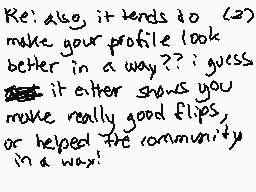 Re: also, it tends to (2)
make your profile look
better in a way?? i guess
it either shows you
make really good flips,
or helped the community
in a way!